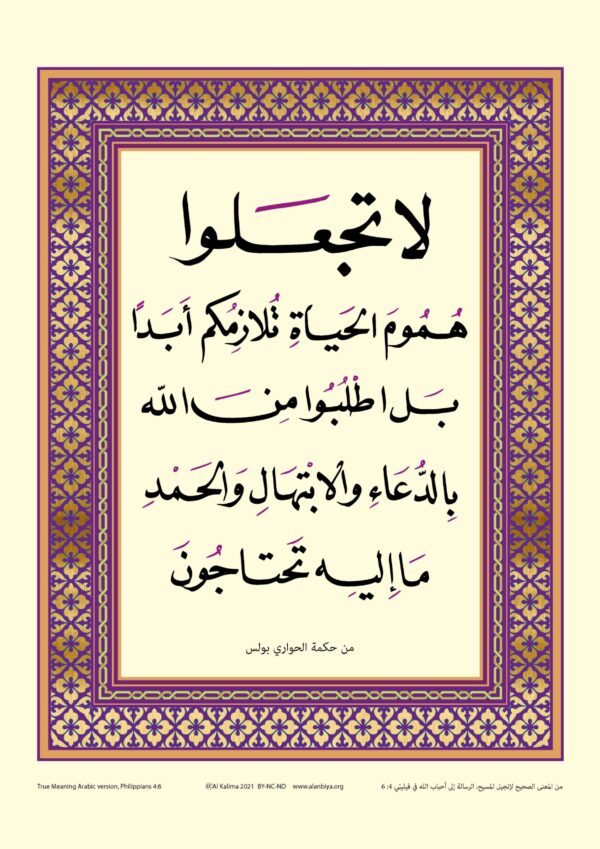 لا تجعلوا
هُمُومَ الحَيَاةِ تُلازِمُكم أَبَدًا
بَل اطْلُبُوا مِنَ الله
بِالدُّعَاءِ والابْتِهَالِ وَالحَمْدِ
مَا إِليهِ تَحتاجُونَ
من حكمة الحواري بولس
True Meaning Arabic version, Philippians 4:6 ©Al Kalima 2021 BY-NC-ND www.alanbiya.org من المعنى الصحيح لإنجيل المسيح، الرسالة إلى أحباب الله في فيليبي 4: 6